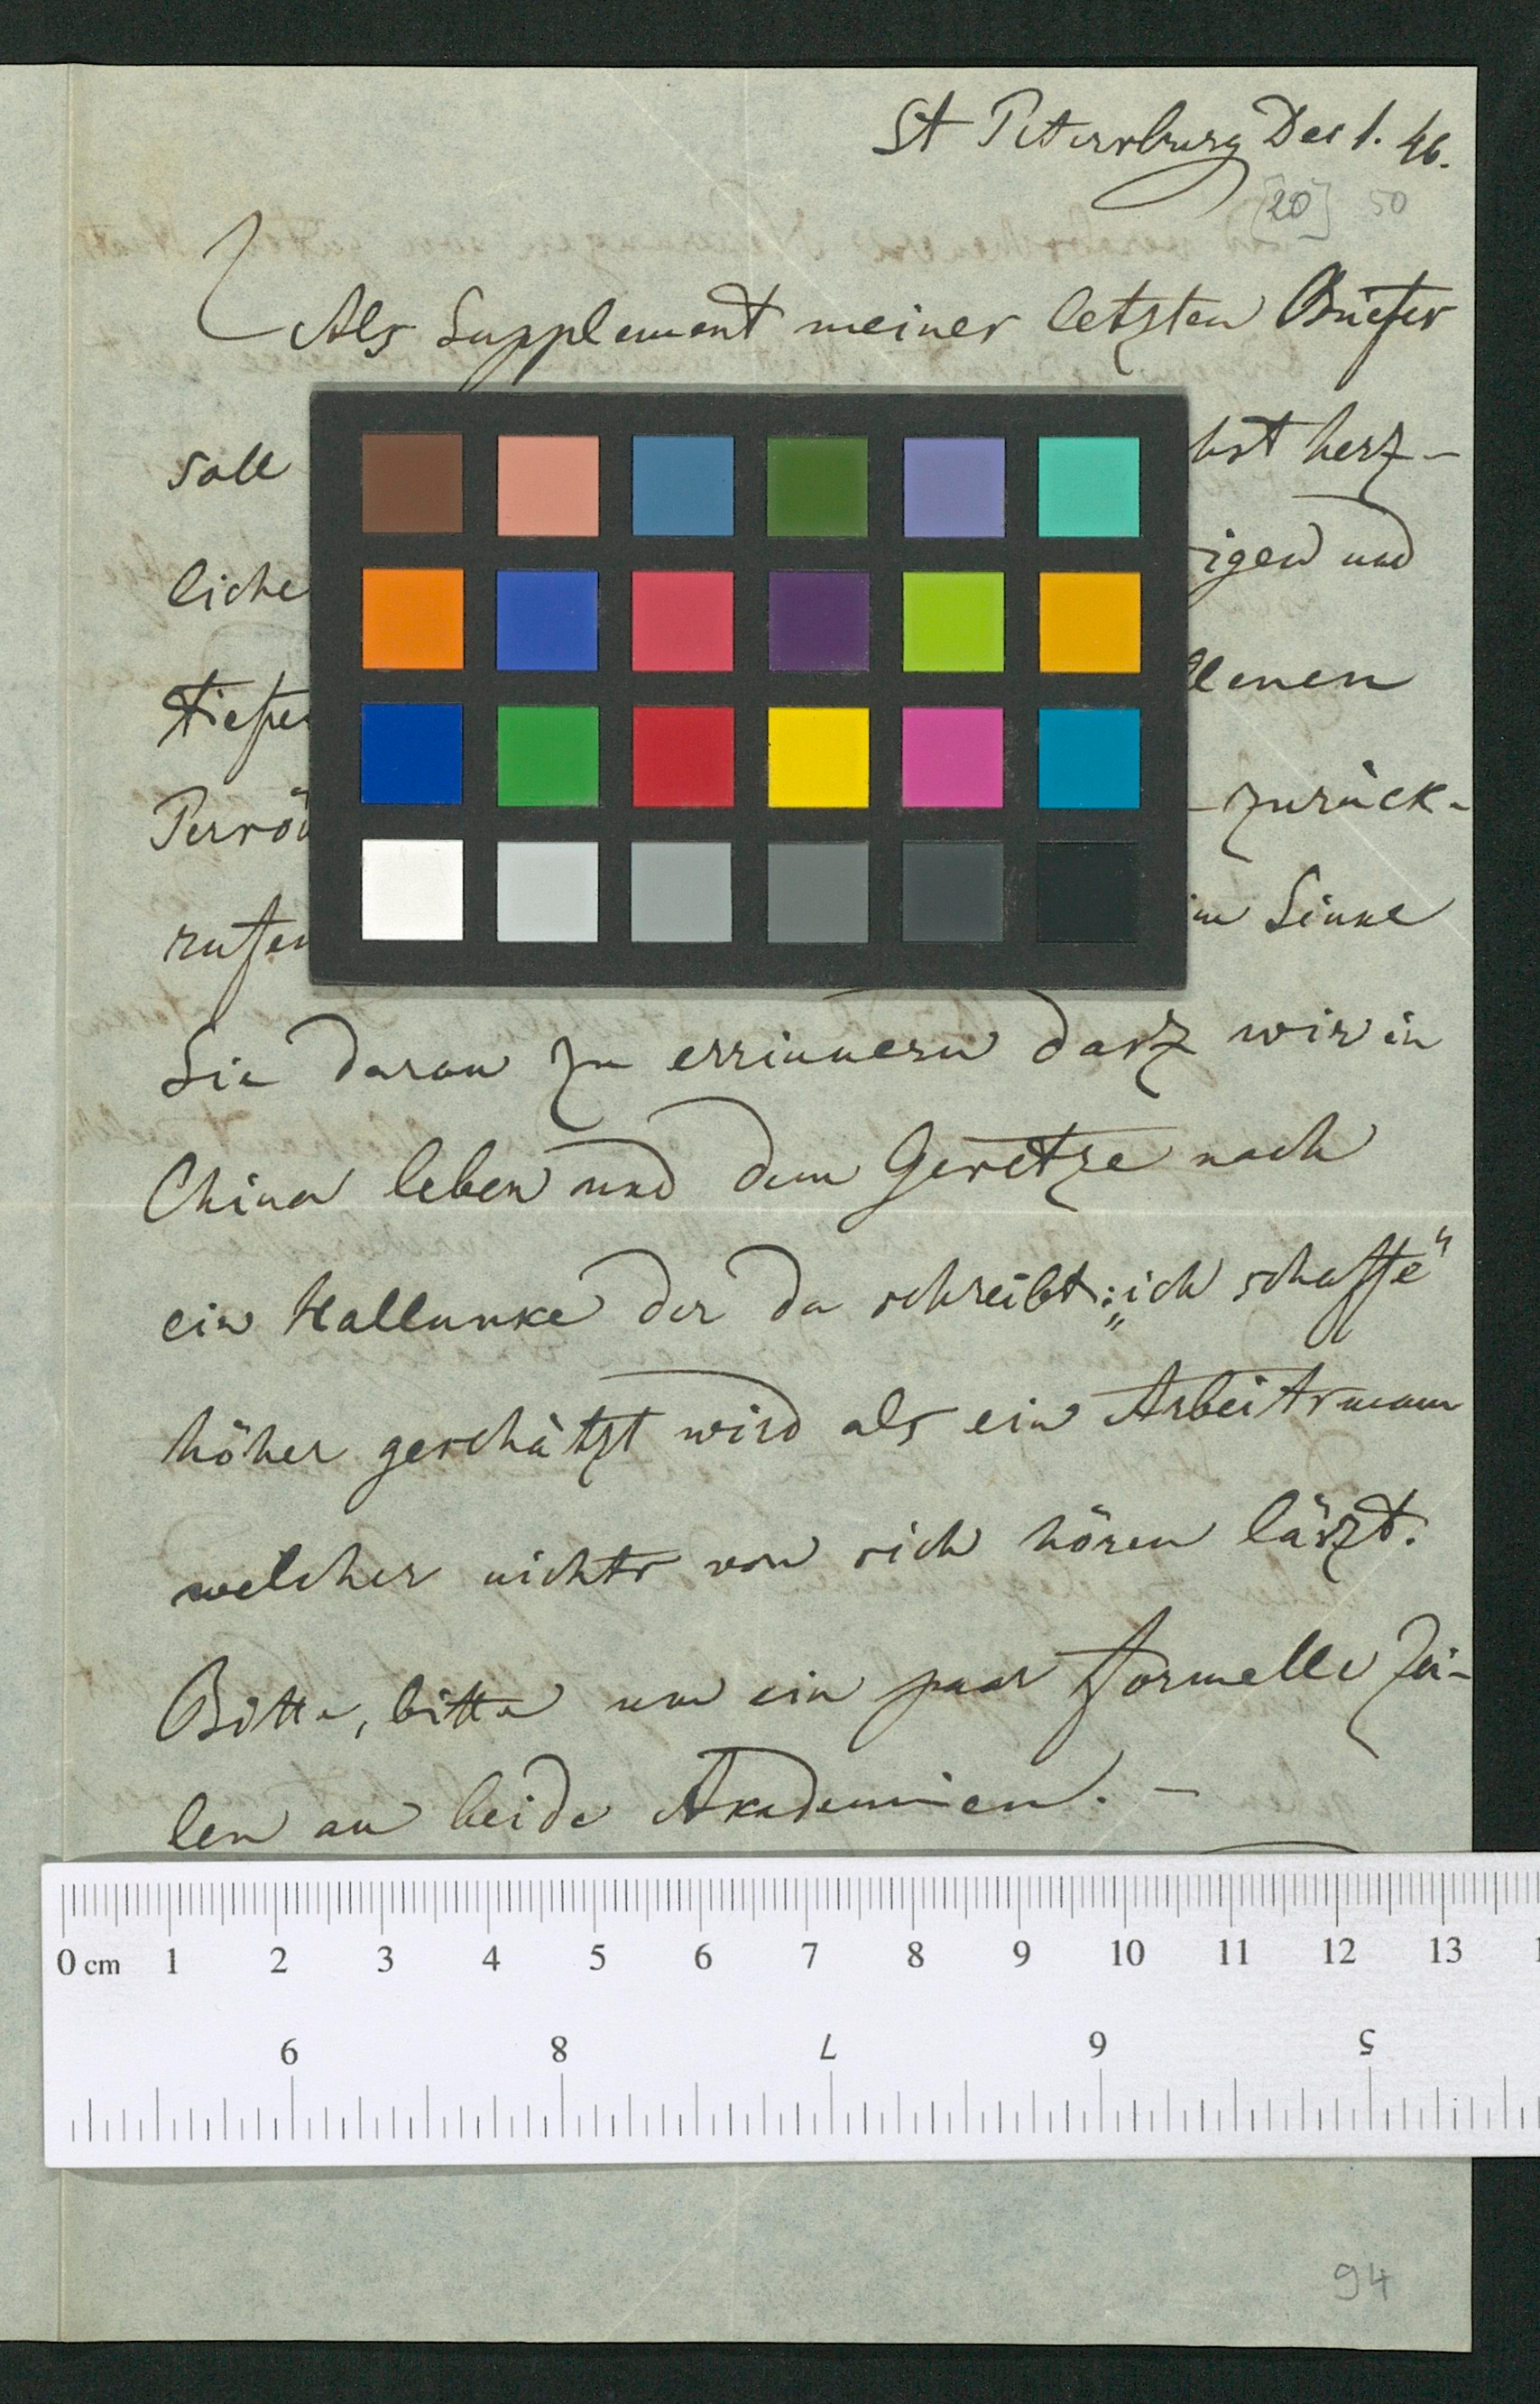 St Petersburg Dec 1. 46.
[20] 50
Als Supplement meines letzten Briefes
soll hst herz-
liche igen und
tiefe llenen
zurück-
rufen im Sinne
Sie daran zu errinnern dasz wir in
China leben und dem Gesetze nach
ein Hallunke der da schreibt: „ich schaffe"
höher geschätzt wird als ein Arbeitsmann
welcher nichts von sich hören läszt.
Bitte, bitte um ein paar formelle Zei-
len an beide Akademien. —
0 cm 1 2 3 4 5 6 7 8 9 10 11 12 13
9 8 7 6 5
94